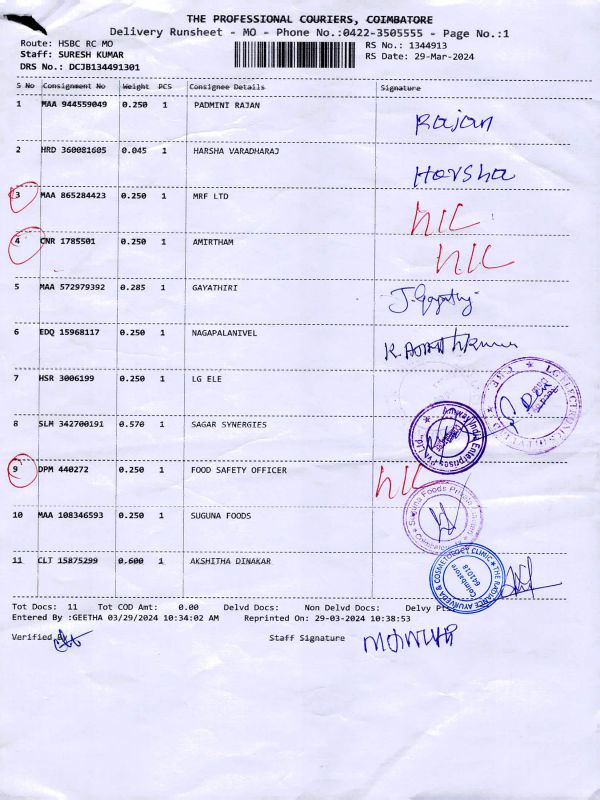 THE PROFESSIONAL COURIERS, COIMBATORE
Delivery Runsheet - MO - Phone No.:0422-3505555 - Page No.:1
Route: HSBC RC MO RS No.: 1344913
Staff: SURESH KUMAR RS Date: 29-Mar-2024
DRS No.: DCJB134491301
S No Consignment No Weight PCS Consignee Details Signature
1 MAA 944559049 0.250 1 PADMINI RAJAN Rajan
2 HRD 360081605 0.045 1 HARSHA VARADHARAJ Harsha
3 MAA 865284423 0.250 1 MRF LTD
4 CNR 1785501 0.250 1 AMIRTHAM
5 MAA 572979392 0.285 1 GAYATHIRI
6 EDQ 15968117 0.250 1 NAGAPALANIVEL
7 HSR 3006199 0.250 1 LG ELE
8 SLM 342700191 0.570 1 SAGAR SYNERGIES
9 DPM 440272 0.250 1 FOOD SAFETY OFFICER
10 MAA 108346593 0.250 1 SUGUNA FOODS
11 CLT 15875299 0.600 1 AKSHITHA DINAKAR
THE RADIANCE AYURVEDA & COSMETOLOGY CLINIC
Coimbatore
641018
Tot Docs: 11 Tot COD Amt: 0.00 Delvd Docs: Non Delvd Docs: Delvy
Entered By :GEETHA 03/29/2024 10:34:02 AM Reprinted On: 29-03-2024 10:38:53
Verified Staff Signature